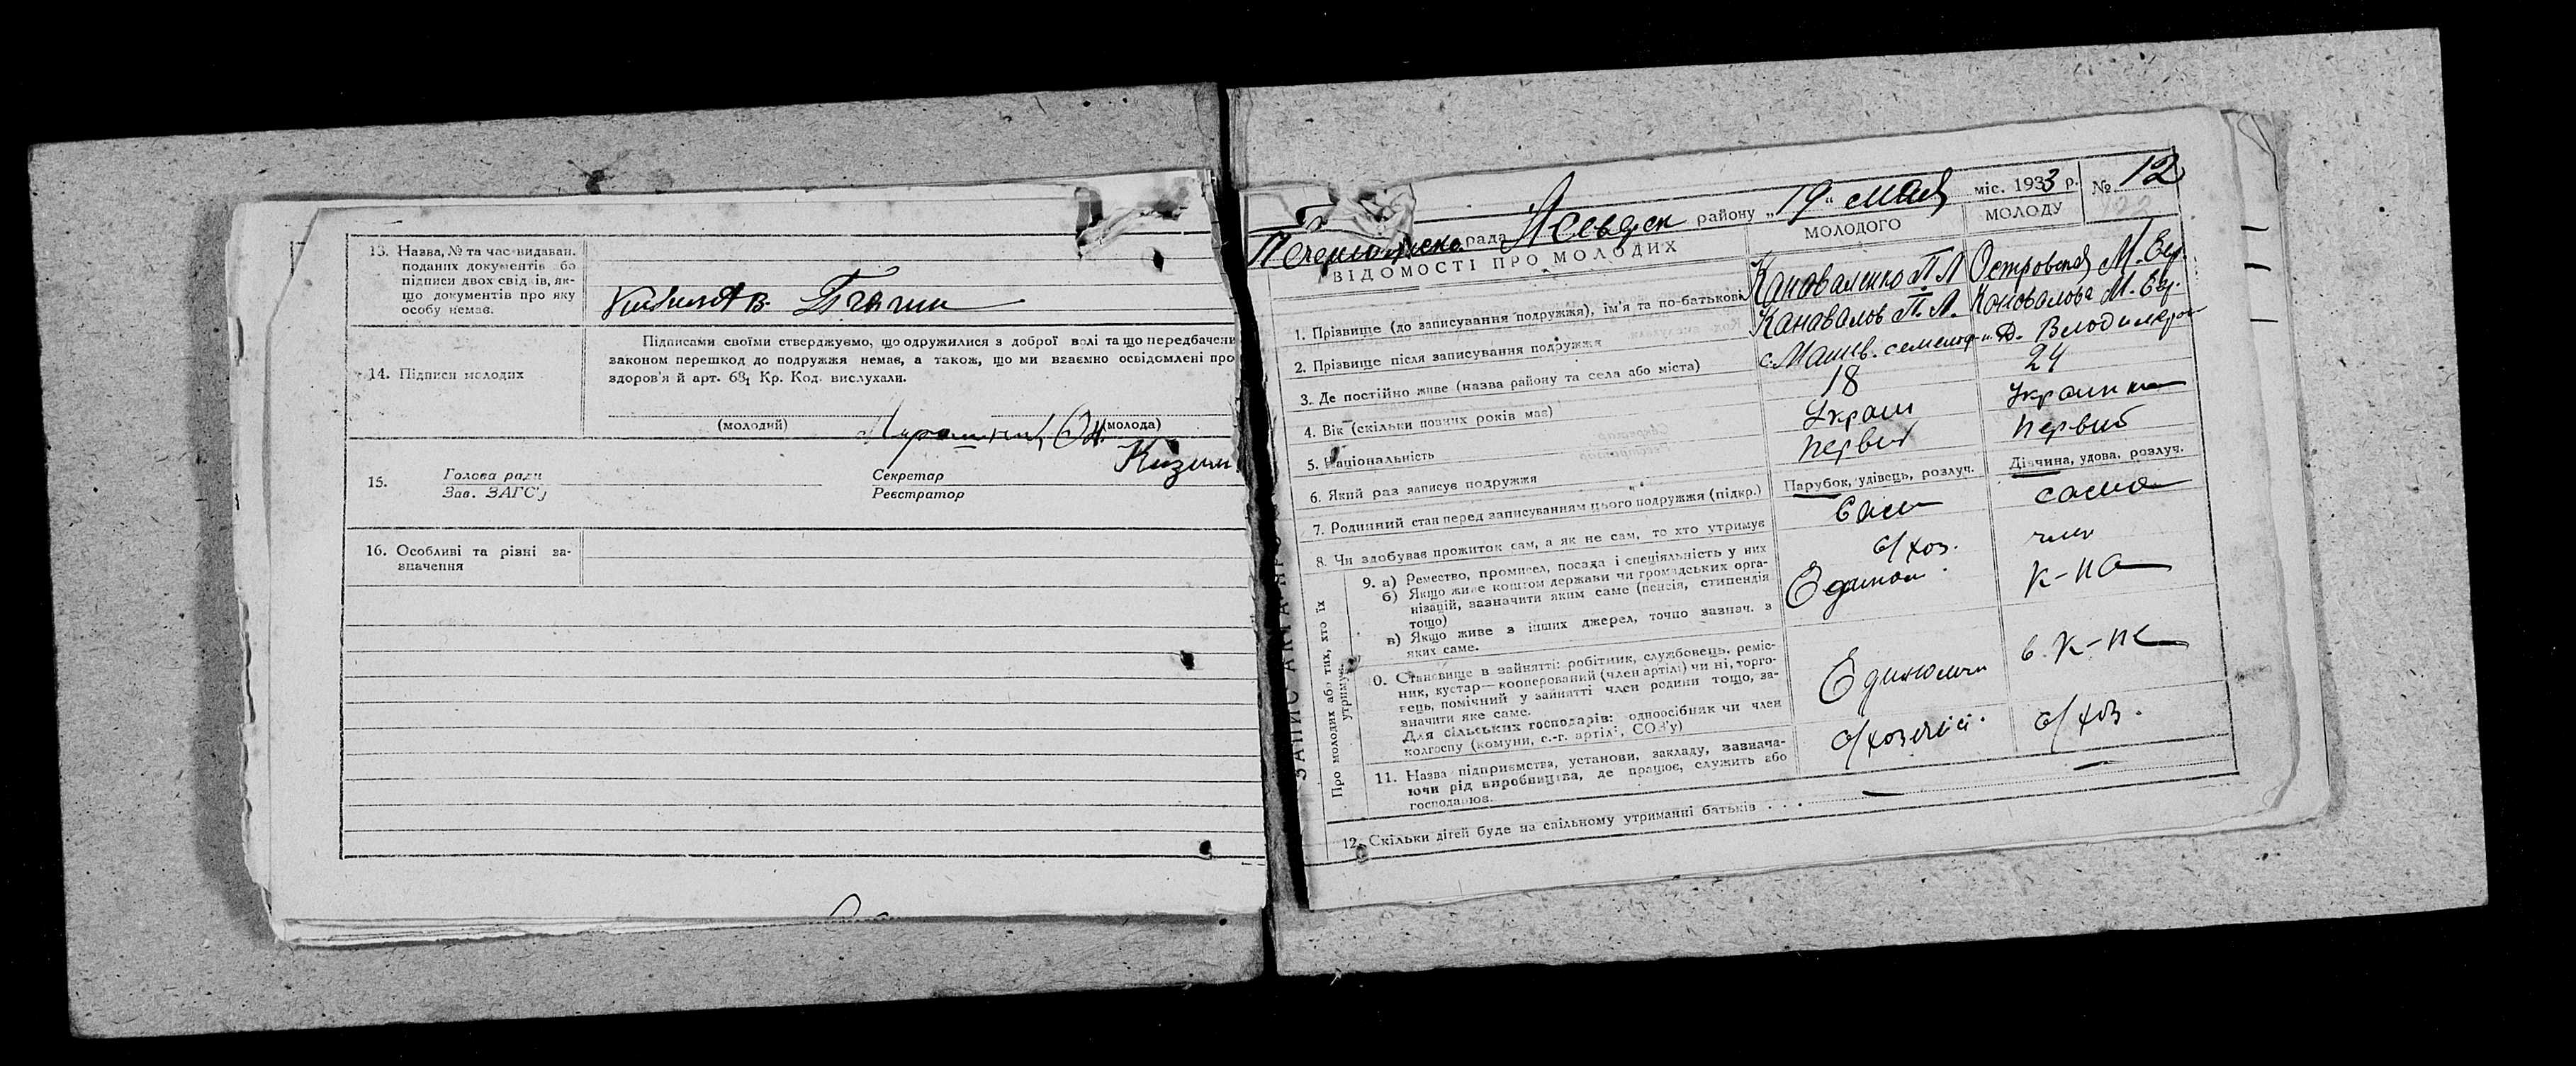 13. Назва, № та час видаван.
поданих документів або
підписи двох свідків, як-
що документів про яку
особу немає.
14. Підписи молодих
Підписами своїми стверджуємо, що одружилися з доброї волі та що передбачени
законом перешкод до подружжя немає, а також, що ми взаємно освідомлені про
здоров'я й арт. 68₁ Кр. Код. вислухали.
(молодий)
(молода)
15.
Голова ради
Зав. ЗАГС'у
Секретар
Реєстратор
16. Особливі та різні за-
значення
рада
району „19“ мая міс. 1933 р. № 12
ВІДОМОСТІ ПРО МОЛОДИХ
МОЛОДОГО
МОЛОДУ
1. Прізвище (до записування подружжя), ім'я та по-батькові
Коноваленко П. Л
Островская М. Ев.
2. Прізвище після записування подружжя
Канавалов П. Л.
Коновалова М. Ев.
3. Де постійно живе (назва району та села або міста)
4. Вік (скільки повних років має)
18
24
5. Національність
Украин
Украинка
6. Який раз записує подружжя
первий
первий
7. Родинний стан перед записуванням цього подружжя (підкр.)
Парубок, удівець, розлуч.
Дівчина, удова, розлуч.
8. Чи здобуває прожиток сам, а як не сам, то хто утримує
сам
сама
ЗАПИС АКТА ПРО
Про молодих або тих, хто їх
утримує
9. а) Ремество, промисел, посада і спеціяльність у них
б) Якщо живе коштом держави чи громадських орга-
нізацій, зазначити яким саме (пенсія, стипендія
тощо)
в) Якщо живе з інших джерел, точно зазнач. з
яких саме.
с/хоз.
член
к-па
0. Становище в зайнятті: робітник, службовець, реміс-
ник, кустар—кооперований (член артілі) чи ні, торго-
вець, помічний у зайнятті член родини тощо, за-
значити яке саме.
Для сільських господарів: одноосібник чи член
колгоспу (комуни, с.-г. артілі, СОЗ'у)
11. Назва підприємства, установи, закладу, зазнача-
ючи рід виробництва, де працює, служить або
господарює.
с/хоз.
12. Скільки дітей буде на спільному утриманні батьків . . .